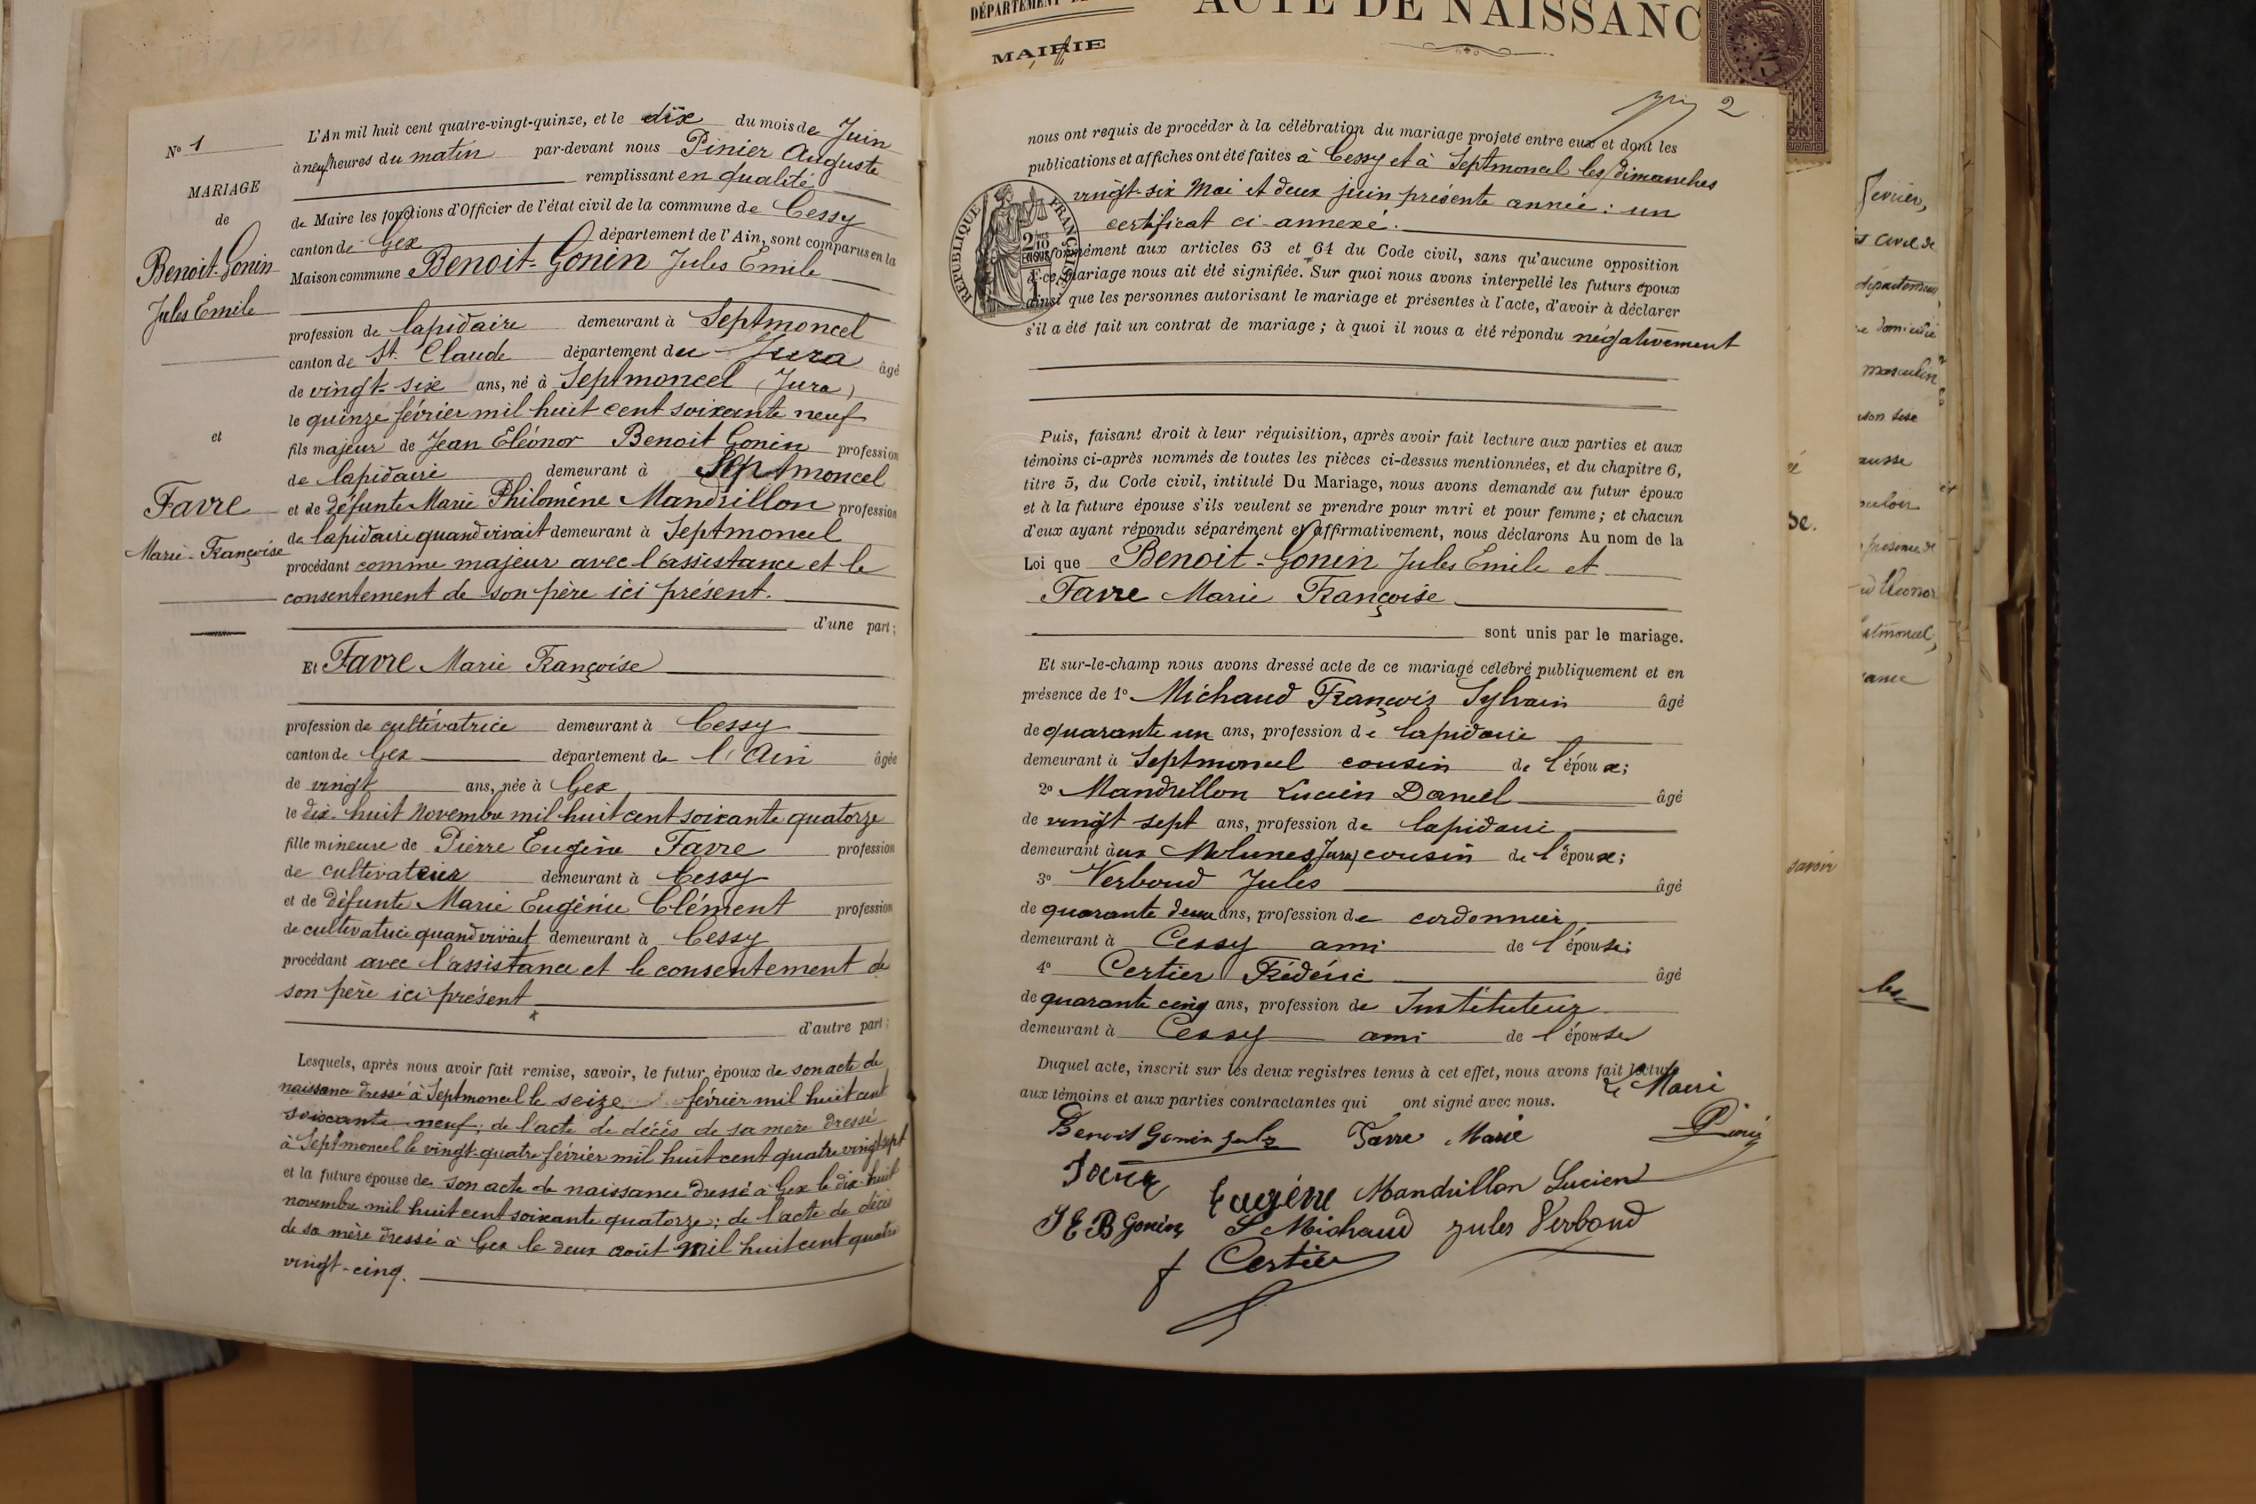 N° 1
MARIAGE
de
Benoit-Gonin
Jules Emile
et
Favre
Marie-Françoise
L'An mil huit cent quatre-vingt-quinze, et le dix du mois de Juin
à neuf heures du matin par-devant nous Pinier Auguste
remplissant en qualité
de Maire les fonctions d'Officier de l'état civil de la commune de Cessy
canton de Gex département de l'Ain, sont comparus en la
Maison commune Benoit-Gonin Jules Emile
profession de lapidaire demeurant à Septmoncel
canton de St. Claude département du Jura âgé
de vingt-six ans, né à Septmoncel (Jura)
le quinze février mil huit cent soixante neuf
fils majeur de Jean Eléonor Benoit Gonin profession
de lapidaire demeurant à Septmoncel
et de défunte Marie Philomène Mandrillon profession
de lapidaire quand vivait demeurant à Septmoncel
procédant comme majeur avec l'assistance et le
consentement de son père ici présent.
d'une part;
Et Favre Marie Françoise
profession de cultivatrice demeurant à Cessy
canton de Gex département de l'Ain âgée
de vingt ans, née à Gex
le dix-huit Novembre mil huit cent soixante quatorze
fille mineure de Pierre Eugène Favre profession
de cultivateur demeurant à Cessy
et de défunte Marie Eugénie Clément profession
de cultivatrice quand vivait demeurant à Cessy
procédant avec l'assistance et le consentement de
son père ici présent
d'autre part;
Lesquels, après nous avoir fait remise, savoir, le futur époux de son acte de
naissance dressé à Septmoncel le seize février mil huit cent
soixante neuf; de l'acte de décès de sa mère dressé
à Septmoncel le vingt-quatre février mil huit cent quatre vingt sept
et la future épouse de son acte de naissance dressé à Gex le dix-huit
novembre mil huit cent soixante quatorze; de l'acte de décès
de sa mère dressé à Gex le deux août mil huit cent quatre
vingt-cinq.
DÉPARTEMENT
MAIRIE
ACTE DE NAISSANC
2
nous ont requis de procéder à la célébration du mariage projeté entre eux et dont les
publications et affiches ont été faites à Cessy et à Septmoncel les Dimanches
vingt-six Mai et deux juin présente année: un
certificat ci-annexé.
RÉPUBLIQUE FRANÇAISE
conformément aux articles 63 et 64 du Code civil, sans qu'aucune opposition
à ce mariage nous ait été signifiée. Sur quoi nous avons interpellé les futurs époux
ainsi que les personnes autorisant le mariage et présentes à l'acte, d'avoir à déclarer
s'il a été fait un contrat de mariage; à quoi il nous a été répondu négativement
Puis, faisant droit à leur réquisition, après avoir fait lecture aux parties et aux
témoins ci-après nommés de toutes les pièces ci-dessus mentionnées, et du chapitre 6,
titre 5, du Code civil, intitulé Du Mariage, nous avons demandé au futur époux
et à la future épouse s'ils veulent se prendre pour mari et pour femme; et chacun
d'eux ayant répondu séparément et affirmativement, nous déclarons Au nom de la
Loi que Benoit-Gonin Jules Emile et
Favre Marie Françoise
sont unis par le mariage.
Et sur-le-champ nous avons dressé acte de ce mariage célébré publiquement et en
présence de 1° Michaud François Sylvain âgé
de quarante un ans, profession de lapidaire
demeurant à Septmoncel cousin de l'époux;
2° Mandrillon Lucien Daniel âgé
de vingt sept ans, profession de lapidaire
demeurant aux Molunes (Jura) cousin de l'époux;
3° Verboud Jules âgé
de quarante deux ans, profession de cordonnier
demeurant à Cessy ami de l'épouse;
4° Certier Frédéric âgé
de quarante cinq ans, profession de Instituteur
demeurant à Cessy ami de l'épouse
Duquel acte, inscrit sur les deux registres tenus à cet effet, nous avons fait lecture
aux témoins et aux parties contractantes qui ont signé avec nous.
Le Maire
Benoit Gonin Jules Favre Marie Pinier
Favre Eugène Mandrillon Lucien
J E B Gonin S Michaud Jules Verboud
f Certier
février,
masculin
savoir